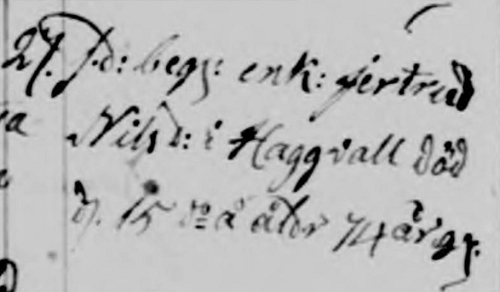 27. S.d: begr: enk: Jertrud
Nilsd: i Haggvall död
d. 15 do å åldr 74 år gr.